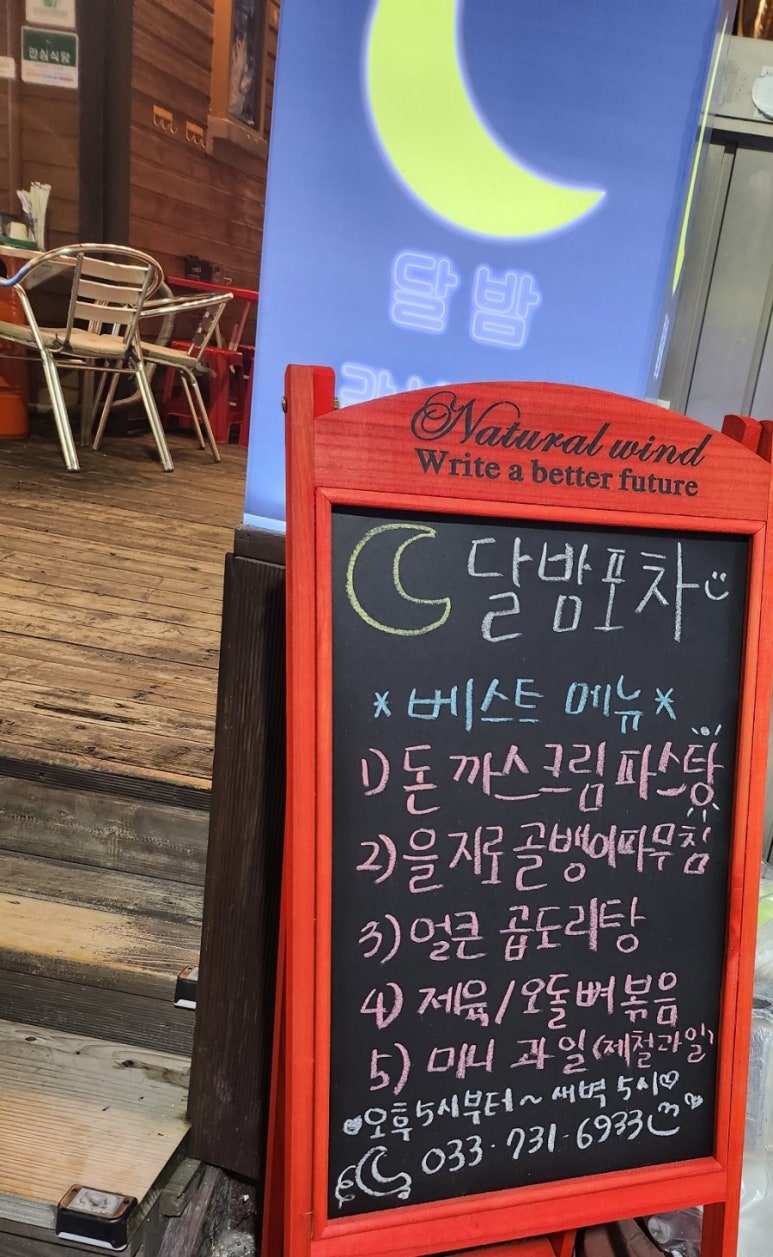 안심식당
달밤
Natural wind
Write a better future
달밤포차
*베스트 메뉴*
1) 돈까스크림파스탕
2) 을지로골뱅이파무침
3) 얼큰 곱도리탕
4) 제육/오돌뼈볶음
5) 미니 과일(제철과일)
오후5시부터~새벽 5시
033-731-6933